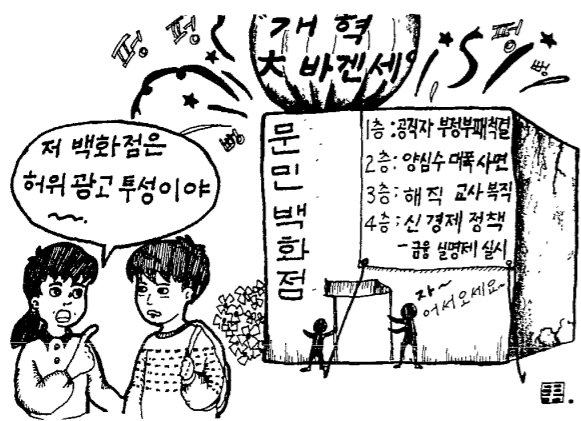 펑 펑
개혁
大 바겐세일
펑
뻥
뻥
저 백화점은
허위 광고 투성이야
문민백화점
1층:공직자 부정부패척결
2층: 양심수 대폭 사면
3층: 해직 교사 복직
4층: 신경제 정책
- 금융 실명제 실시
자~
어서오세요